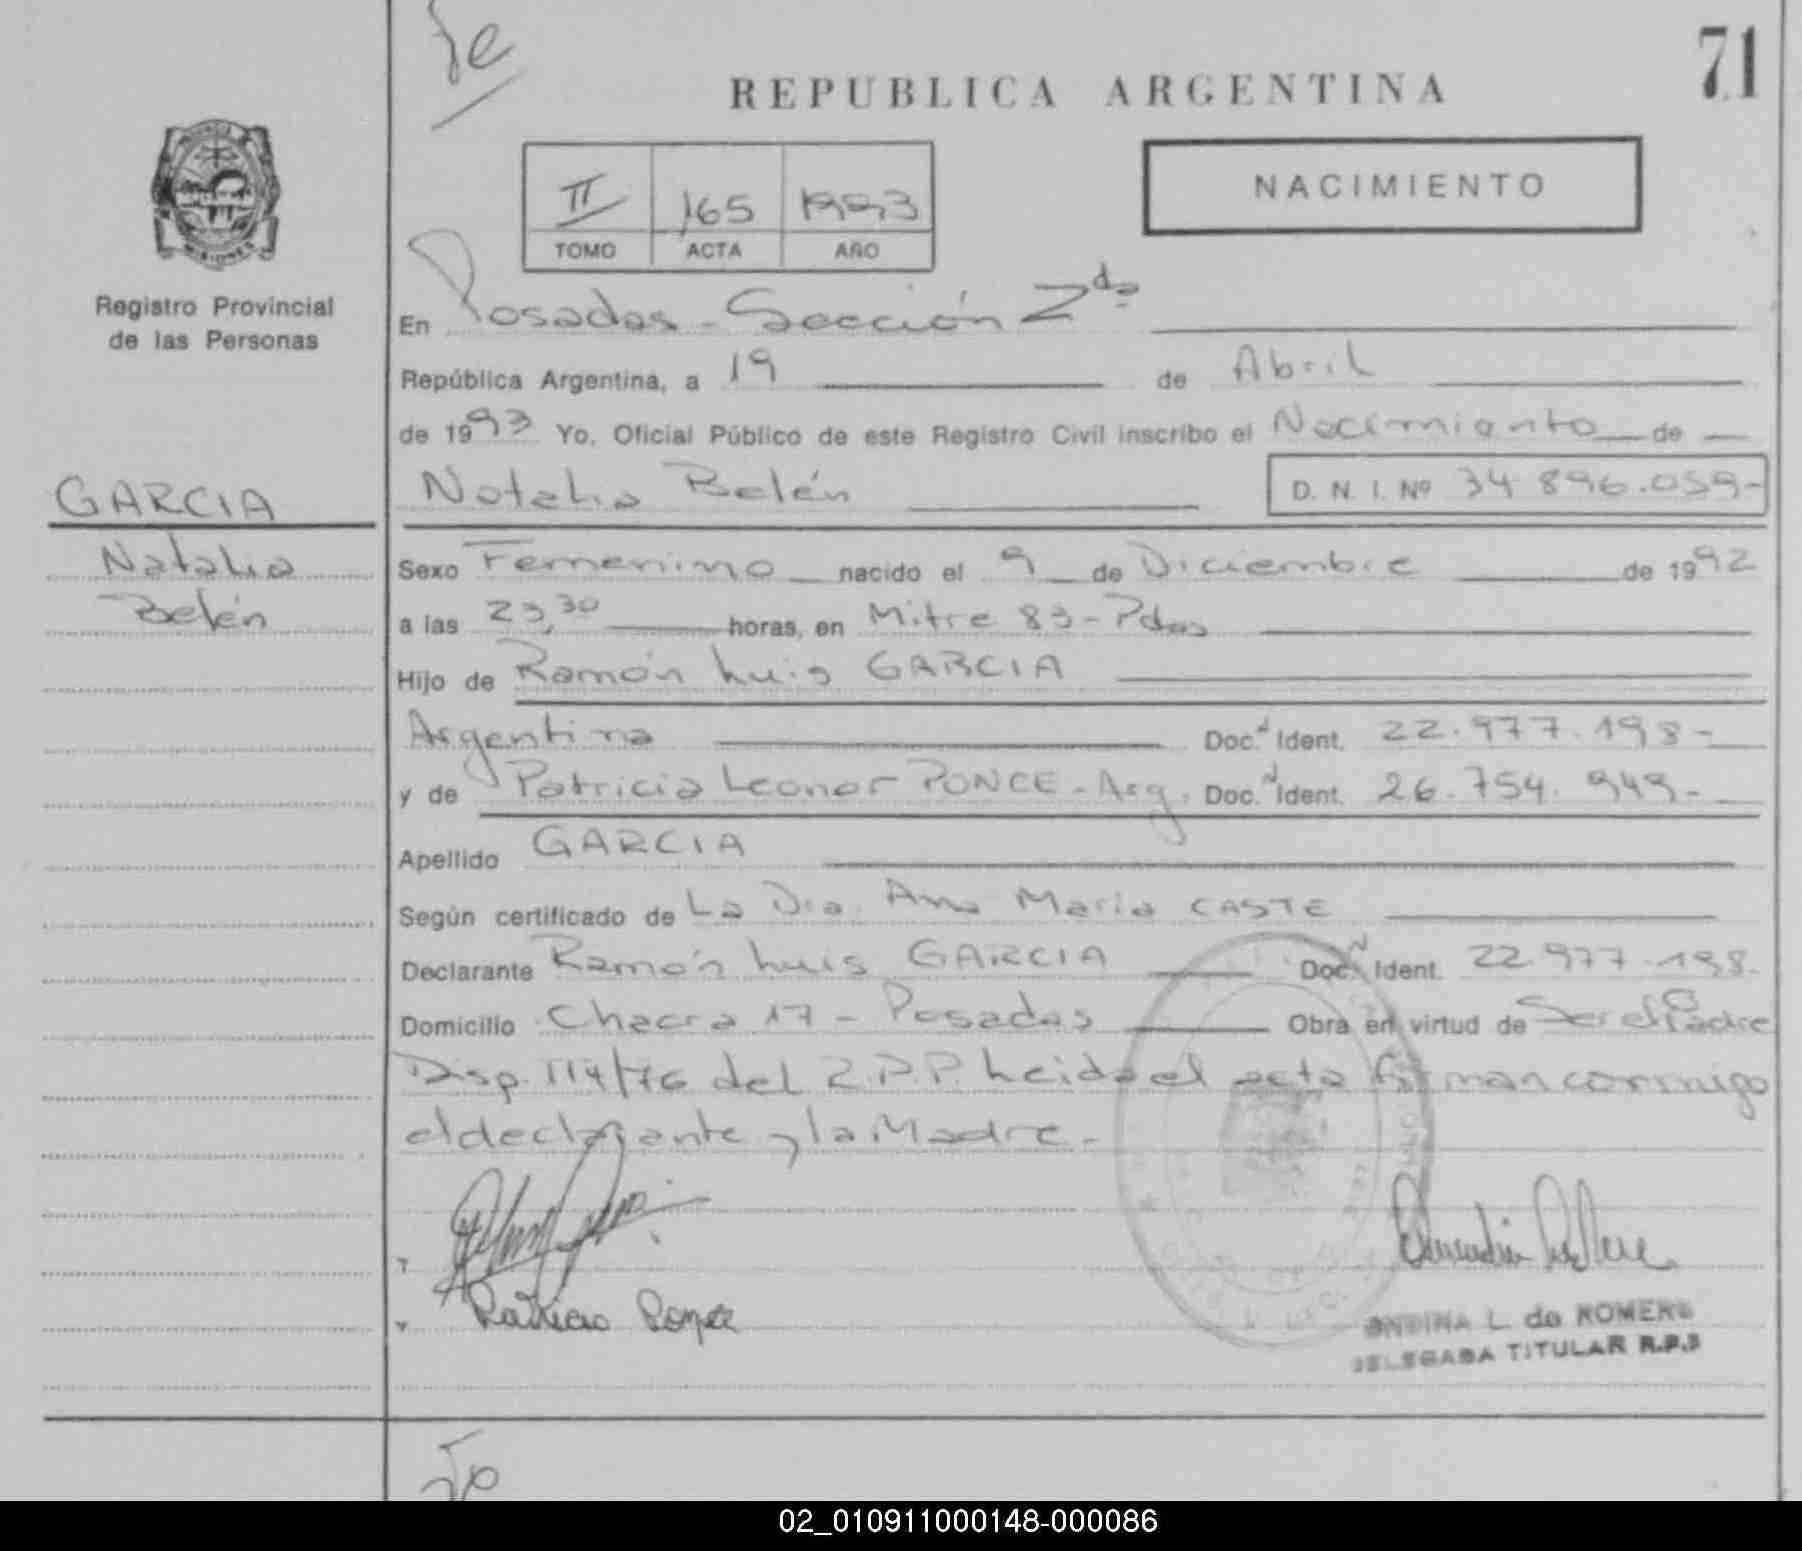 71
REPUBLICA ARGENTINA
NACIMIENTO
II 165 1993
TOMO ACTA AÑO
MISIONES
Registro Provincial
de las Personas
En Posadas - Sección 2da
República Argentina, a 19 de Abril
de 1993 Yo, Oficial Público de este Registro Civil inscribo el Nacimiento de
GARCIA
Natalia Belén D. N. I. Nº 34 896.059-
Natalia
Belén
Sexo Femenino nacido el 9 de Diciembre de 1992
a las 23,30 horas, en Mitre 83 - Pdas
Hijo de Ramón Luis GARCIA
Argentina Doc. Ident. 22.977.198-
y de Patricia Leonor PONCE - Arg. Doc. Ident. 26.754.949-
Apellido GARCIA
Según certificado de La Dra. Ana Maria CASTE
Declarante Ramón Luis GARCIA Doc. Ident. 22.977.198-
Domicilio Chacra 17 - Posadas Obra en virtud de Ser el Padre
Disp. 114/76 del R.P.P. Leida el acta firman conmigo
el declarante y la Madre.-
Patricia Ponce
ONDINA L. de ROMERO
DELEGADA TITULAR R.P.P
02_010911000148-000086